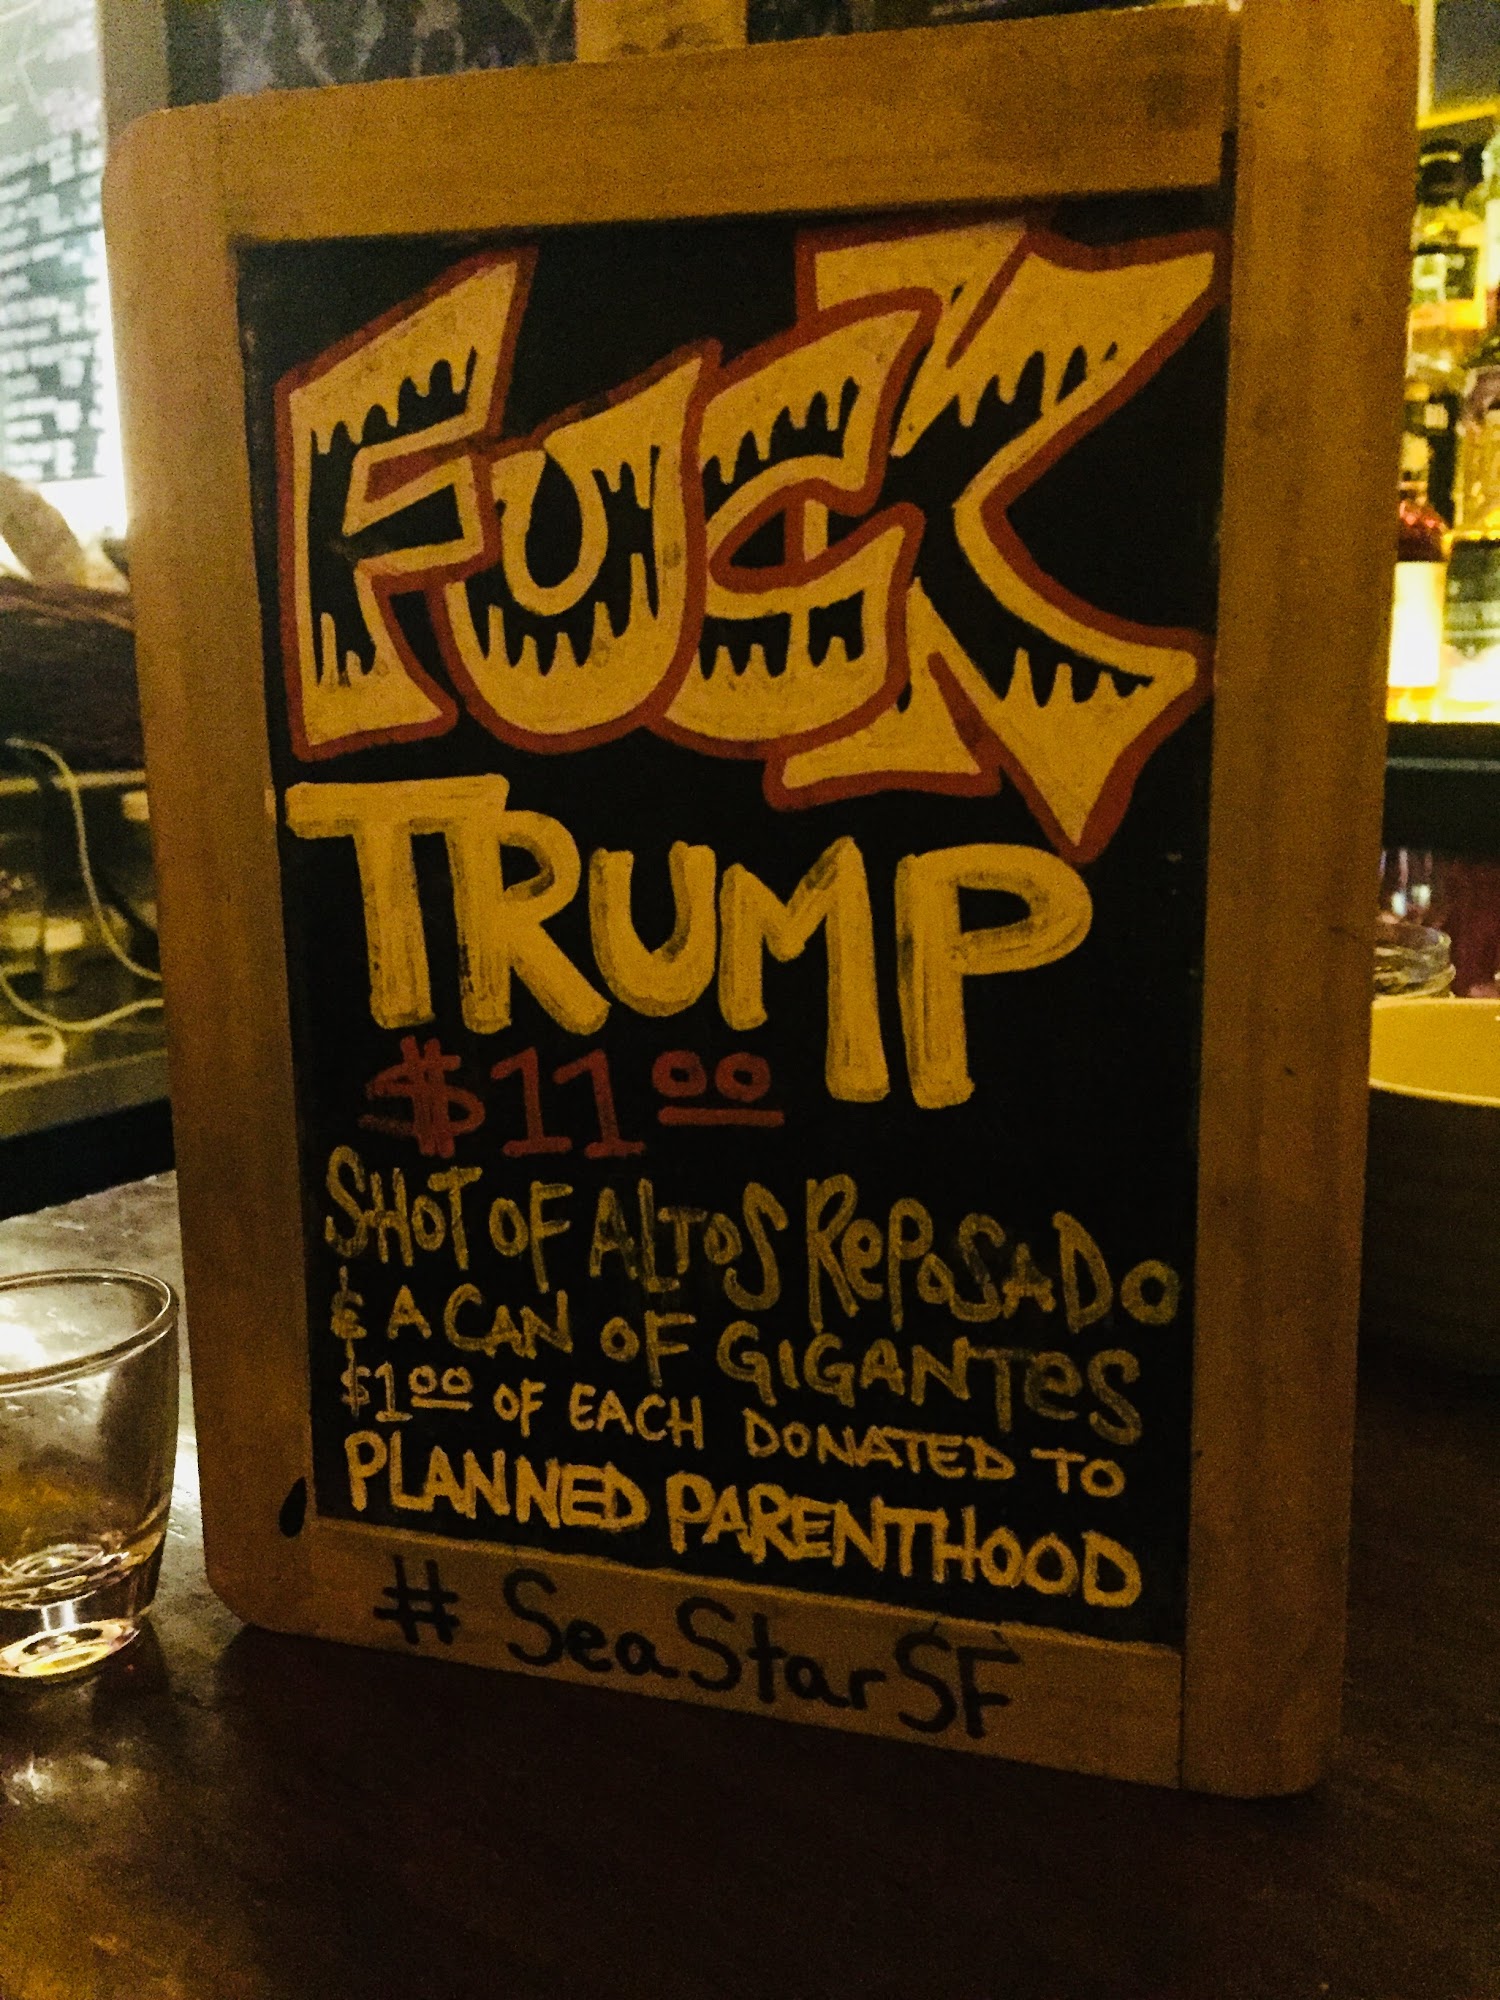 FUCK
TRUMP
$11.00
SHOT OF ALTOS REPOSADO
& A CAN OF GIGANTES
$1.00 OF EACH DONATED TO
PLANNED PARENTHOOD
# SeaStarSF